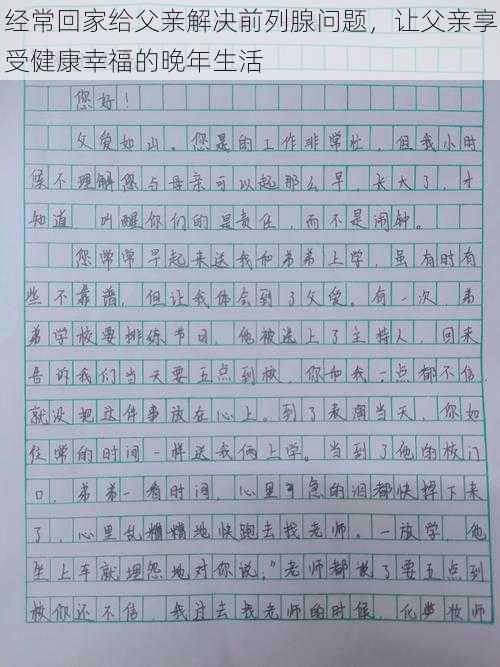 经常回家给父亲解决前列腺问题，让父亲享
受健康幸福的晚年生活
您好！
父爱如山。您是的工作非常忙，但我小时
候不理解您与母亲可以起那么早，长大了，才
知道，叫醒你们的是责任，而不是闹钟。
您常常早起来送我和弟弟上学，虽有时有
些不靠谱，但让我体会到了父爱。有一次，弟
弟学校要排练节目，他被选上了主持人，回来
告诉我们当天要五点到校，你和我一点都不信，
就没把这件事放在心上。到了表演当天，你如
往常的时间一样送我俩上学。当到了他的校门
口，弟弟一看时间，心里可急的泪都快掉下来
了，心里乱糟糟地快跑去找老师。一放学，他
坐上车就埋怨地对你说，“老师都说了要五点到
校你还不信，我过去找老师的时候，化妆师